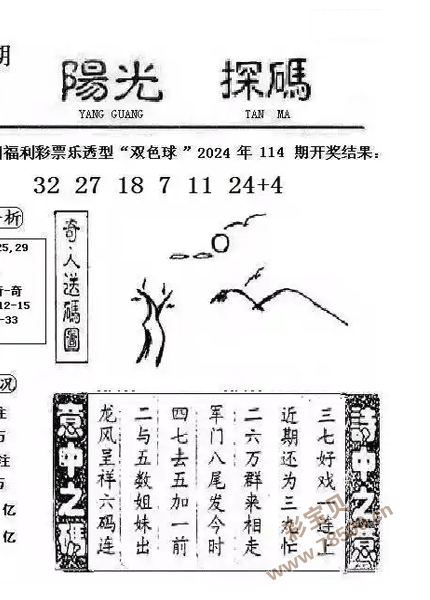 期
陽光 探碼
YANG GUANG TAN MA
福利彩票乐透型“双色球”2024 年 114 期开奖结果：
32 27 18 7 11 24+4
析
25,29
奇
12-15
-33
奇人送碼圖
况
注
万
注
万
亿
亿
詩中之意
三七好戏一连上
近期还为三九忙
二六万群来相走
军门八尾发今时
四七去五加一前
二与五数姐妹出
龙凤呈祥六码连
意中之碼
彩宝贝